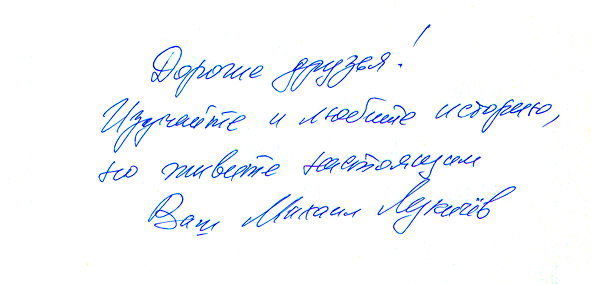 Дорогие друзья!
Изучайте и любите историю,
но живите настоящим
Ваш Михаил Лукичёв